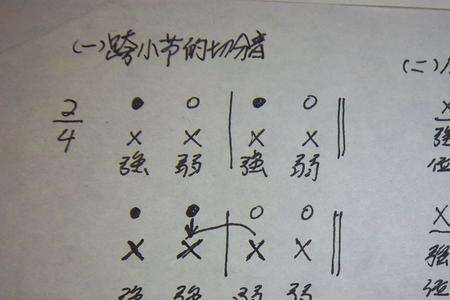 (一)跨小节的切分音
2/4 ● ○ | ● ○ ‖
X X | X X
强 弱 强 弱
● ● | ○ ○ ‖
X X | X X
强 强 弱 弱
(二)
X
强
位
X
强
位